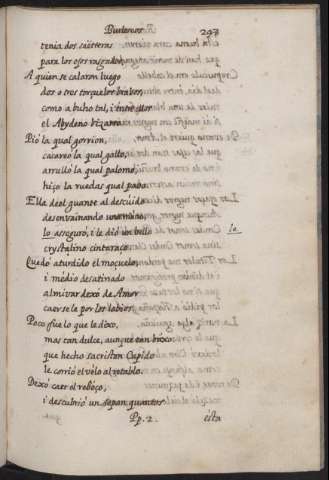 Burlescas. 297
tenia dos cañteras
para los ojos rasgados,
A quien se calaron luego
dos o tres torçuelos bravos,
como a buho tal, i entre ellos
el Abydeno bizarro.
Pió la qual gorrion,
cacareó la qual gallo,
arrulló la qual palomo,
hiço la ruedas qual pabo.
Ella de el guante al descuido
desenvainando una mano,
lo asseguró, i le dió un bello la
crystalino cintaraço.
Quedó aturdido el moçuelo,
i medio desatinado
almivar dexó de Amor
caerse le por los labios.
Poco fue lo que le dixo,
mas tan dulce, aunque tan brixo
que hecho sacristan Cupido
le corrió el velo al retablo.
Dexó caer el reboço,
i descubrió un
Pp. 2. esta